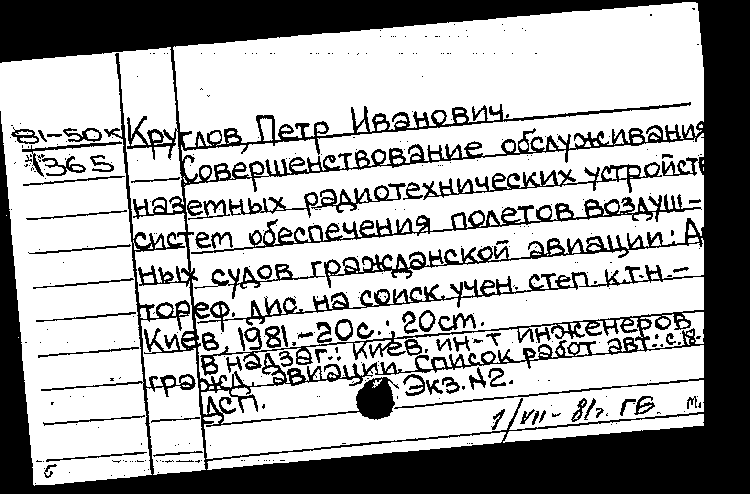 81-50к Круглов, Петр Иванович.
1365 Совершенствование обслуживания
наземных радиотехнических устройств
систем обеспечения полетов воздуш-
ных судов гражданской авиации: А
тореф. дис. на соиск. учен. степ. к.т.н.-
Киев, 1981.-20с.; 20см.
В надзаг.: Киев. ин-т инженеров
гражд. авиации. Список работ авт.: с.18-
ДСП. Экз.N2.
1/VII-81г. ГБ. М.
б